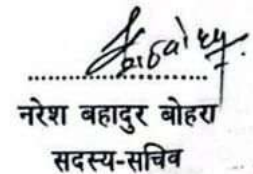 नरेश बहादुर बोहरा
सदस्य-सचिव